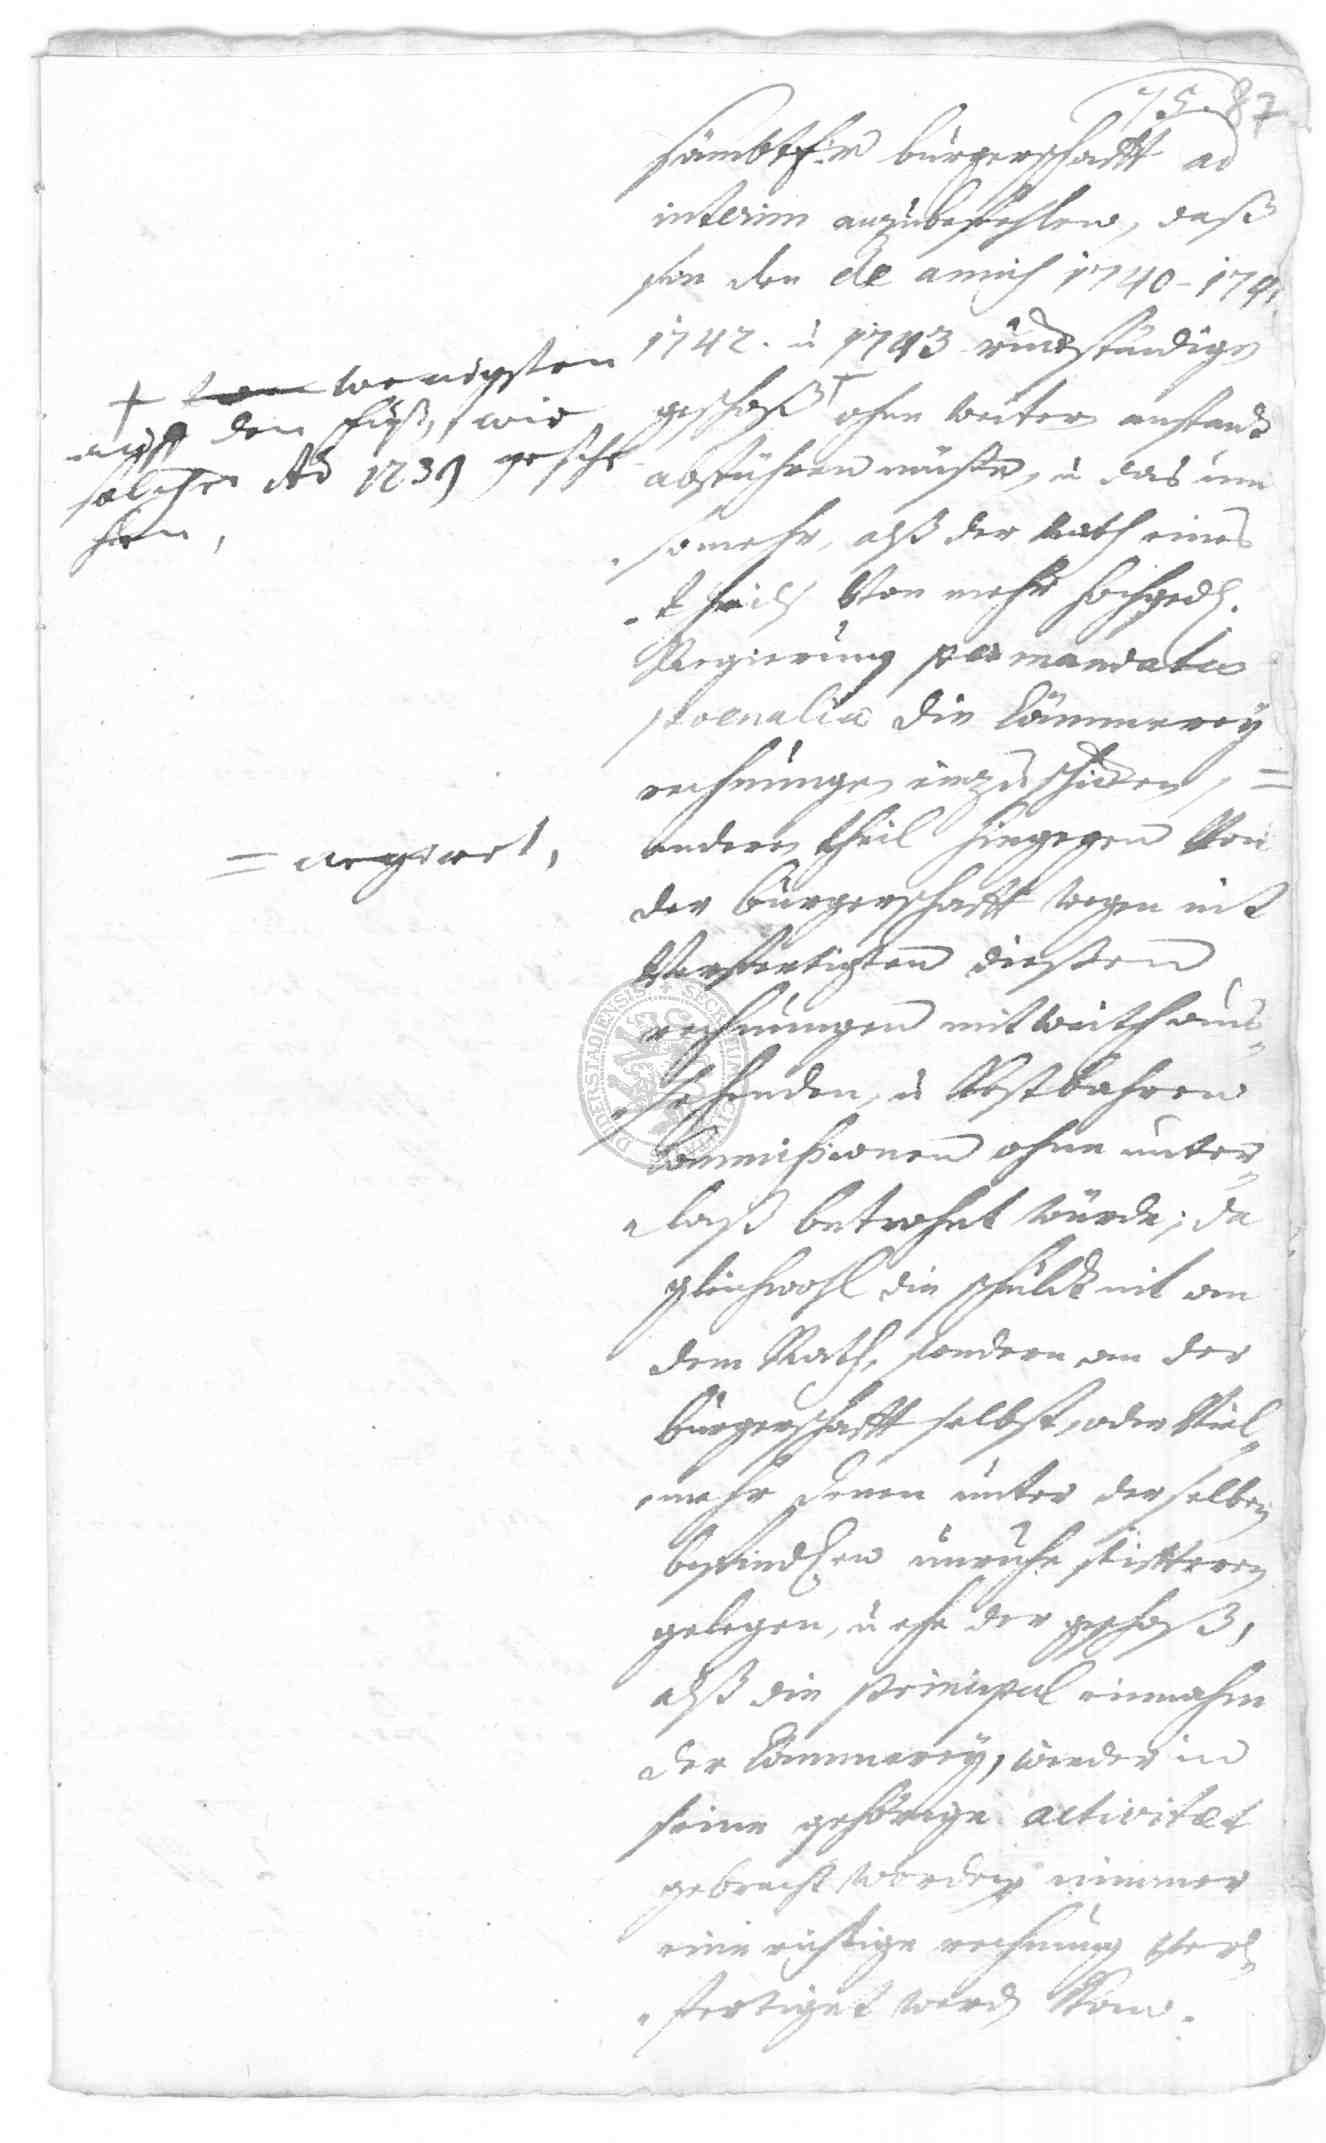 75. 87
sämbtl:n bürgerschafft ad
interim anzubefehlen, daß
sie den de annis 1740 - 1741
1742. ü 1743 rückständigen
geschoß + ohne weiter anstandt
abführen müste, ü das üm
somehr, alß der Rath eines
theils Von mehr hochged.
Regierung per mandata
poenalia die Cämmerey
rechnungen inzüschicken, =
andern theil hingegen Von
der bürgerschafft wegen nit
Verfertigten diesen
rechnungen mit weith aus-
sehenden, ü Kostbahren
Commissionen ohne unter-
laß betrohet würde; da
gleichwohl die schuldt nit an
dem Rath, sondern an der
bürgerschafft selbst, oder Viel
mehr denen unter derselben
befindl:en ünruhe stifteren
gelegen, ü ehe der geschoß,
alß die principal einnahm
der Cämmerey, wieder in
seine gehörige activitæt
gebracht worden, nimmer
eine richtige rechnung Ver-
fertiget werden Kan.
+ wenigsten
auff den fuß, wie
solcher Ao 1739 gesche
hen,
= urgiret,
DUDERSTADIENSIS + SECRETUM